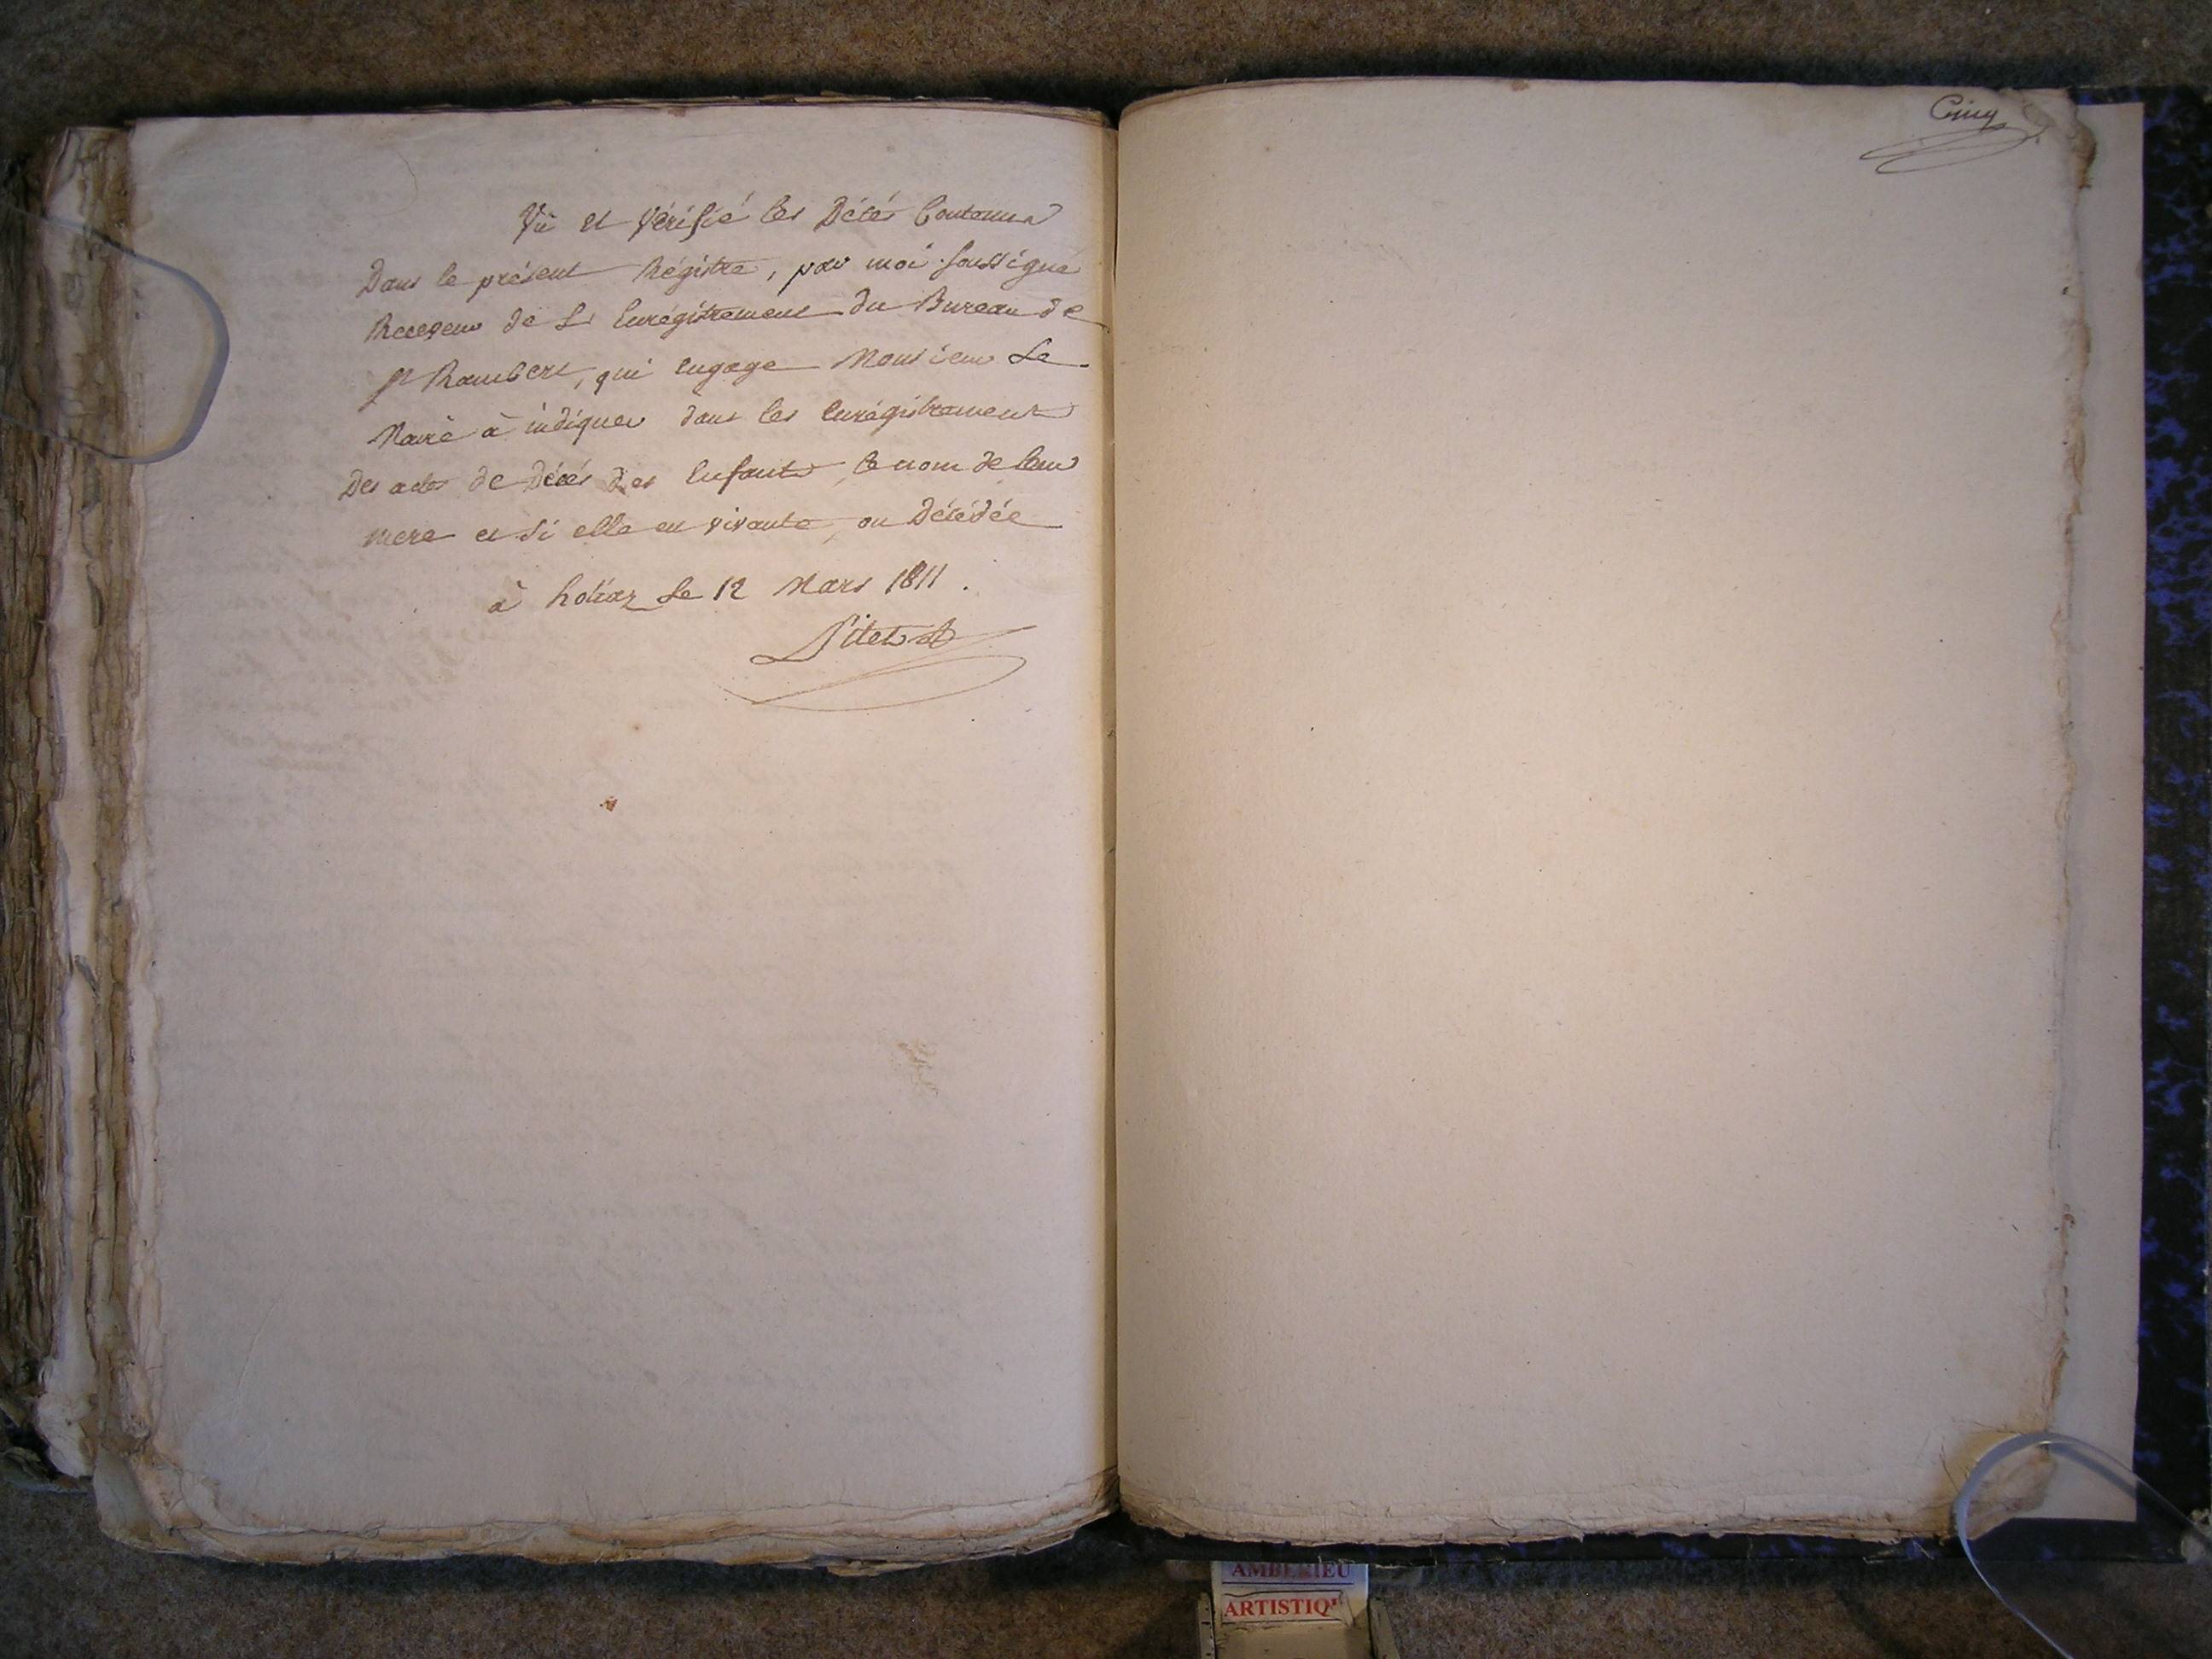 Vû et Vérifié les Décés Contenus
Dans le présent Régistre, par moi soussigné
Receveur de L'Enrégistrement du Bureau de
St Rambert, qui engage Monsieur Le
Maire à indiquer dans les Enrégistrements
Des actes de Décés des Enfants, le nom de leur
mere et si elle est vivante, ou Décédée
à Le 12 Mars 1811.
Cinq
AMBERIEU
ARTISTIQU